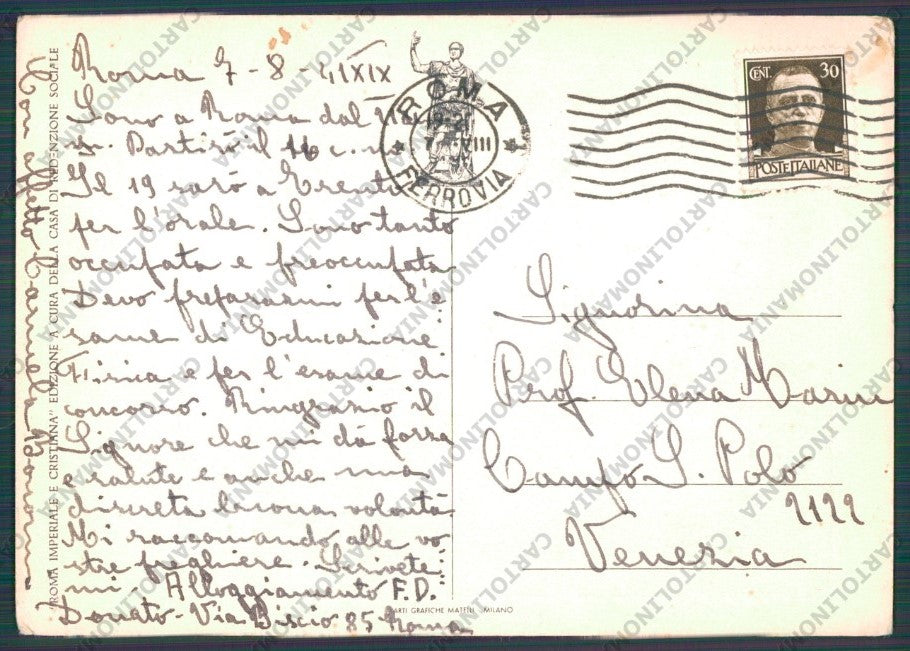 Roma 7-8-41 XIX
Sono a Roma dal
Partirò il 16 c.m.
Il 19 sarò a Trento
per l'orale. Sono tanto
occupata e preoccupata
Devo prepararmi per l'e
same di Educazione
Fisica e per l'esame di
concorso. Ringrazio il
Signore che mi dà forza
e salute e anche una
discreta buona volontà
Mi raccomando alle vo
stre preghiere. Scrivete
mi - Alloggiamento F.D.
Donato - Via Biscio 85 Roma
Con affetto
"ROMA IMPERIALE E CRISTIANA" EDIZIONE A CURA DELLA CASA DI REDENZIONE SOCIALE
ROMA
FERROVIA
CENT. 30
POSTE ITALIANE
Signorina
Prof. Elena Marin
Campo S. Polo
2122
Venezia
ARTI GRAFICHE MATELLI - MILANO
CARTOLINOMANIA